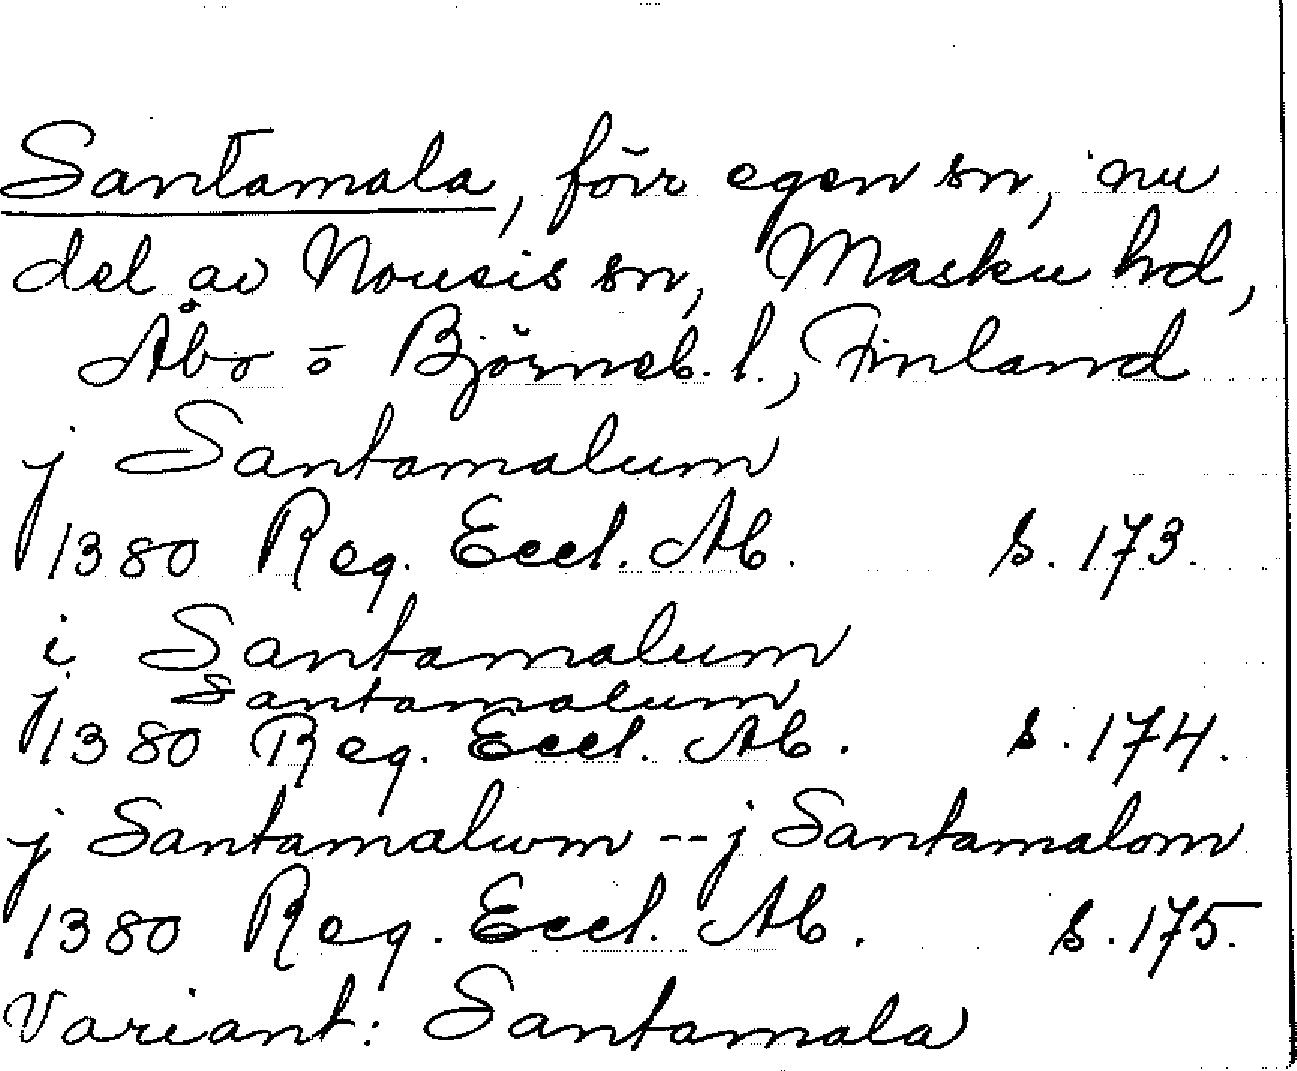 Santamala, förr egen sn, nu
del av Nousis sn, Masku hd,
Åbo o Björneb. l., Finland
j Santamalum
1380 Reg. Eccl. Ab. s. 173.
i Santamalum
j Santamalum
1380 Reg. Eccl. Ab. s. 174.
j Santamalwm -- j Santamalom
1380 Reg. Eccl. Ab. s. 175.
Variant: Santamala